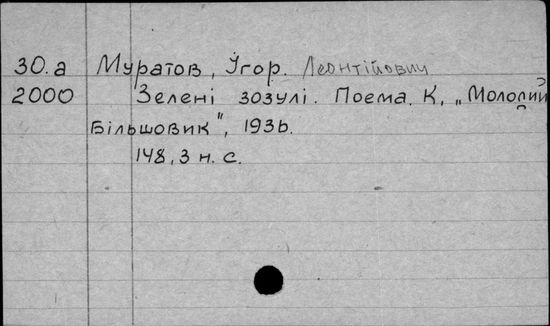 30.а Муратов, Ігор. Леонтійович
2000 Зелені зозулі. Поема. К, „Молодий
Більшовик", 1936.
148, 3 н. с.